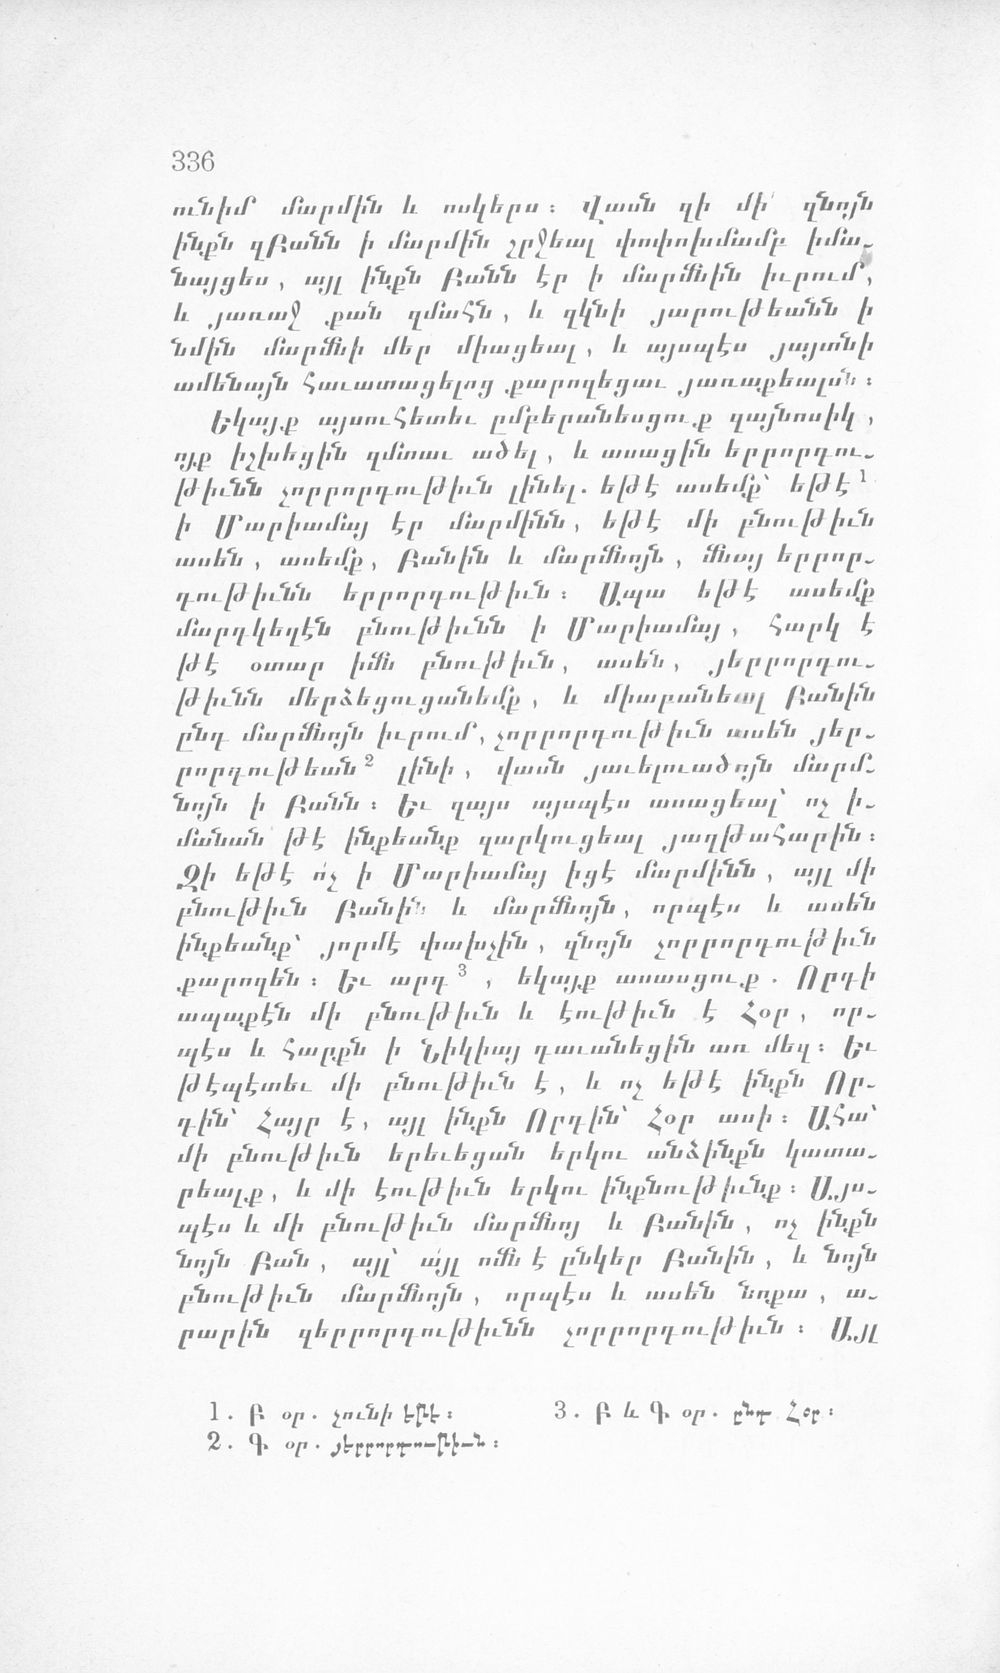 336
ունիմ մարմին և ոսկերս ։ Վասն զի մի՛ զնոյն
ինքն զԲանն ի մարմին շրջեալ փոփոխմամբ իմա-
նայցես , այլ ինքն Բանն էր ի մարմնին իւրում ,
և յառաջ քան զմահն , և զկնի յարութեանն ի
նմին մարմնի մեր միացեալ , և այսպէս յայտնի
ամենայն հաւատացելոց քարոզեցաւ յառաքեալսն ։
Եկայք այսուհետեւ ըմբերանեսցուք զայնոսիկ ,
ոյք իշխեցին զմտաւ ածել , և ասացին երրորդու-
թիւնն չորրորդութիւն լինել . եթէ ասեմք՝ եթէ 1
ի Մարիամայ էր մարմինն , եթէ մի բնութիւն
ասեն , ասեմք , Բանին և մարմնոյն , մնայ երրոր-
դութիւնն երրորդութիւն ։ Ապա եթէ ասեմք
մարդկեղէն բնութիւնն ի Մարիամայ , հարկ է
թէ օտար իմն բնութիւն , ասեն , յերրորդու-
թիւնն մերձեցուցանեմք , և միաբանեալ Բանին
ընդ մարմնոյն իւրում , չորրորդութիւն ասեն յեր-
րորդութեան 2 լինի , վասն յաւելուածոյն մարմ-
նոյն ի Բանն ։ Եւ զայս այսպէս ասացեալ՝ ոչ ի-
մանան թէ ինքեանք զարկուցեալ յաղթահարին ։
Զի եթէ ո՛չ ի Մարիամայ իցէ մարմինն , այլ մի
բնութիւն Բանին և մարմնոյն , որպէս և ասեն
ինքեանք՝ յորմէ փախչին , զնոյն չորրորդութիւն
քարոզեն ։ Եւ արդ 3 , եկայք ասասցուք . Որդի
ապաքէն մի բնութիւն և էութիւն է Հօր , որ-
պէս և հարքն ի Նիկիայ դաւանեցին առ մեզ ։ Եւ
թէպէտեւ մի բնութիւն է , և ոչ եթէ ինքն Որ-
դին՝ Հայր է , այլ ինքն Որդին՝ Հօր ասի ։ Ահա՛
մի բնութիւն երեւեցան երկու անձինքն կատա-
րեալք , և մի էութիւն երկու ինքնութիւնք ։ Այս-
պէս և մի բնութիւն մարմնոյ և Բանին , ոչ ինքն
նոյն Բան , այլ՝ այլ ոմն է ընկեր Բանին , և նոյն
բնութիւն մարմնոյն , որպէս և ասեն նոքա , ա-
րարին զերրորդութիւնն չորրորդութիւն ։ Այլ
1 . Բ օր . չունի եթէ ։
2 . Գ օր . յերրորդութիւն ։
3 . Բ և Գ օր . ընդ Հօր ։